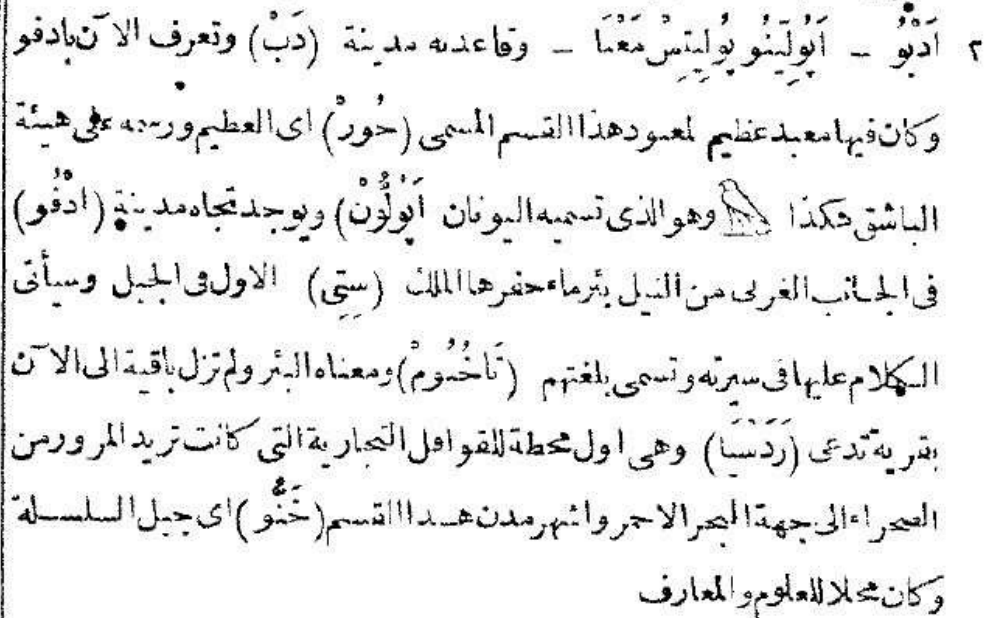 ٢ اَدْبُو ـ اَبُولِّينُو بُولِيتِسْ مَغْنَا ـ وقاعدته مدينة (دَبْ) وتعرف الآن بادفو
وكان فيها معبد عظيم لمعبود هذا القسم المسمى (حُورْ) اى العظيم ورسمه على هيئة
الباشق هكذا وهو الذى تسميه اليونان أَبُولُّونْ) ويوجد تجاه مدينة (ادْفُو)
فى الجانب الغربى من النيل بئر ماء حفرها الملك (سِتِى) الاول فى الجبل وسيأتى
الكلام عليها فى سيرته وتسمى بلغتهم (تَاخْنُومْ) ومعناه البئر ولم تزل باقية الى الآن
بقرية تدعى (رَدَسِيَا) وهى اول محطة للقوافل التجارية التى كانت تريد المرور من
الصحراء الى جهة البحر الاحمر واشهر مدن هذا القسم (خَنُّو) اى جبل السلسلة
وكان محلا للعلوم والمعارف